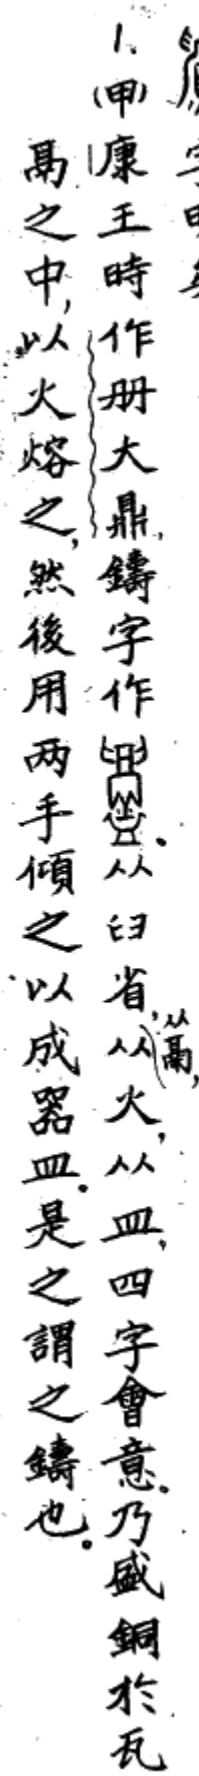 1. (甲)康王時作册大鼎,鑄字作。从臼省,从鬲,从火,从皿,四字會意。乃盛銅於瓦
鬲之中,以火熔之,然後用两手傾之以成器皿。是之謂之鑄也。